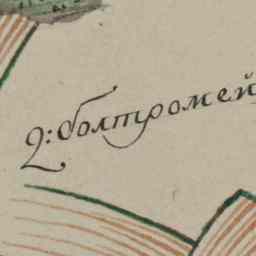 2: болтромей